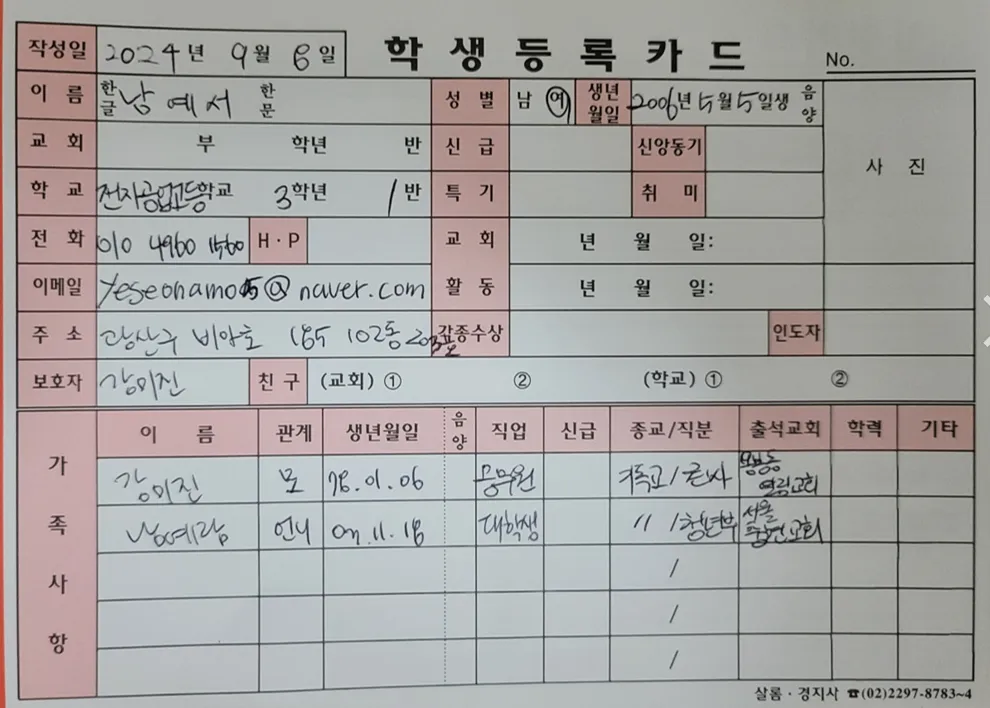 작성일 2024년 9월 8일 학생등록카드 No.
이름 한글 남예서 한문 성별 남 여 생년월일 2006년 5월 5일생 음양
교회 부 학년 반 신급 신앙동기 사진
학교 전자공업고등학교 3학년 1반 특기 취미
전화 010 4960 1560 H·P 교회 년 월 일:
이메일 yeseonamo5@naver.com 활동 년 월 일:
주소 광산구 비아로 185 102동 각종수상 인도자
보호자 강미진 친구 (교회) ① ② (학교) ① ②
가족사항
이름 관계 생년월일 음양 직업 신급 종교/직분 출석교회 학력 기타
강미진 모 78.01.06 공무원 기독교/집사 열림교회
남예람 언니 11.18 대학생 〃/청년부 서울 교회
/
/
/
살롬·경지사 ☎(02)2297-8783~4